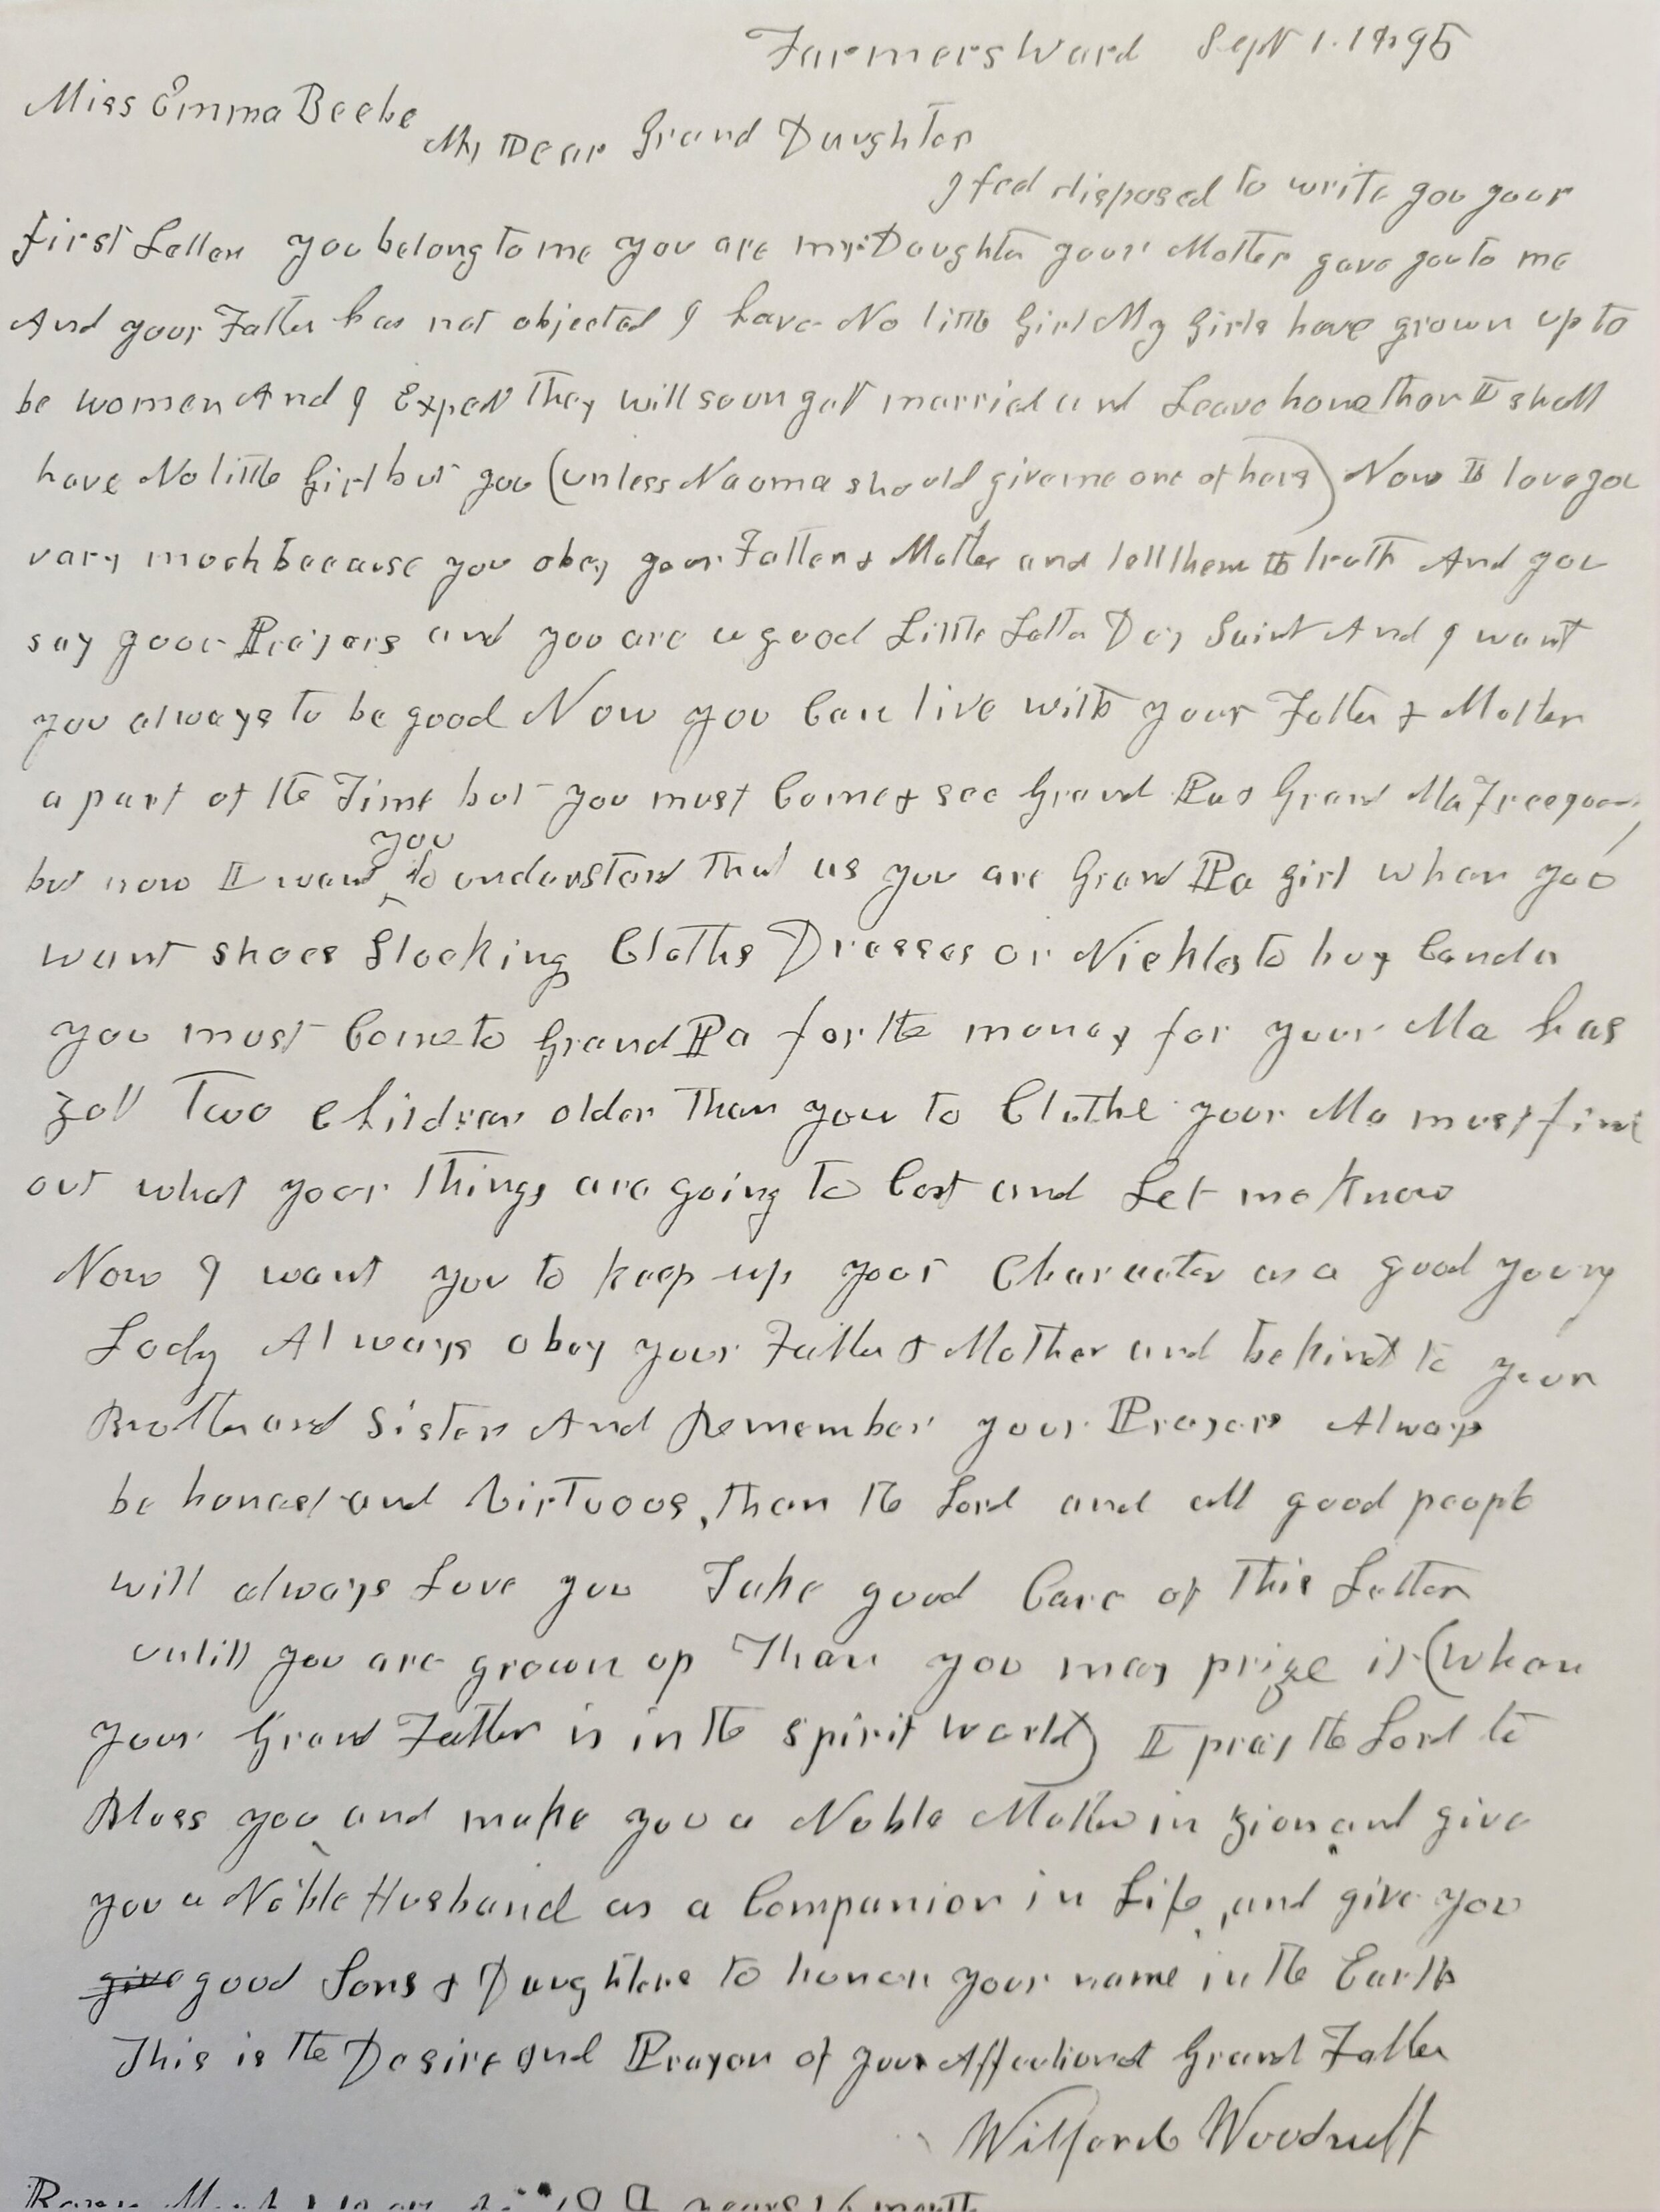 Farmers Ward Sept 1. 1895
Miss Emma Beebe
My Dear Grand Daughter
I feel disposed to write you your
first Letter you belong to me you are my Daughter your Mother gave you to me
And your Father has not objected I have No little Girl My Girls have grown up to
be women And I Expect they will soon get married and Leave home then I shall
have No little Girl but you (unless Naoma should give me one of hers) Now I love you
vary much because you obey your Father & Mother and tell them the truth And you
say your Prayers and you are a good Little Latter Day Saint And I want
you always to be good Now you Can live with your Father & Mother
a part of the Time but you must Come & see Grand Pa & Grand Ma
you
but now I want to understand that as you are Grand Pa girl when you
want shoes Stocking Cloths Dresses or Nickles to buy Canda
you must Come to Grand Pa for the money for your Ma has
got Two Children older than you to Clothe your Ma must find
out what your things are going to Cost and Let me know
Now I want you to keep up your Character as a good young
Lady Always obey your Father & Mother and be kind to your
Brother and Sister And Remember your Prayers Always
be honest and Virtuous, then the Lord and all good people
will always Love you Take good Care of this Letter
untill you are grown up Then you may prize it (when
your Grand Father is in the spirit world) I pray the Lord to
Bless you and make you a Noble Mother in Zion and give
you a Noble Husband as a Companion in Life, and give you
give good Sons & Daughters to honor your name in the Earth
This is the Desire and Prayer of your Affectionat Grand Father
Wilford Woodruff
years 6 month